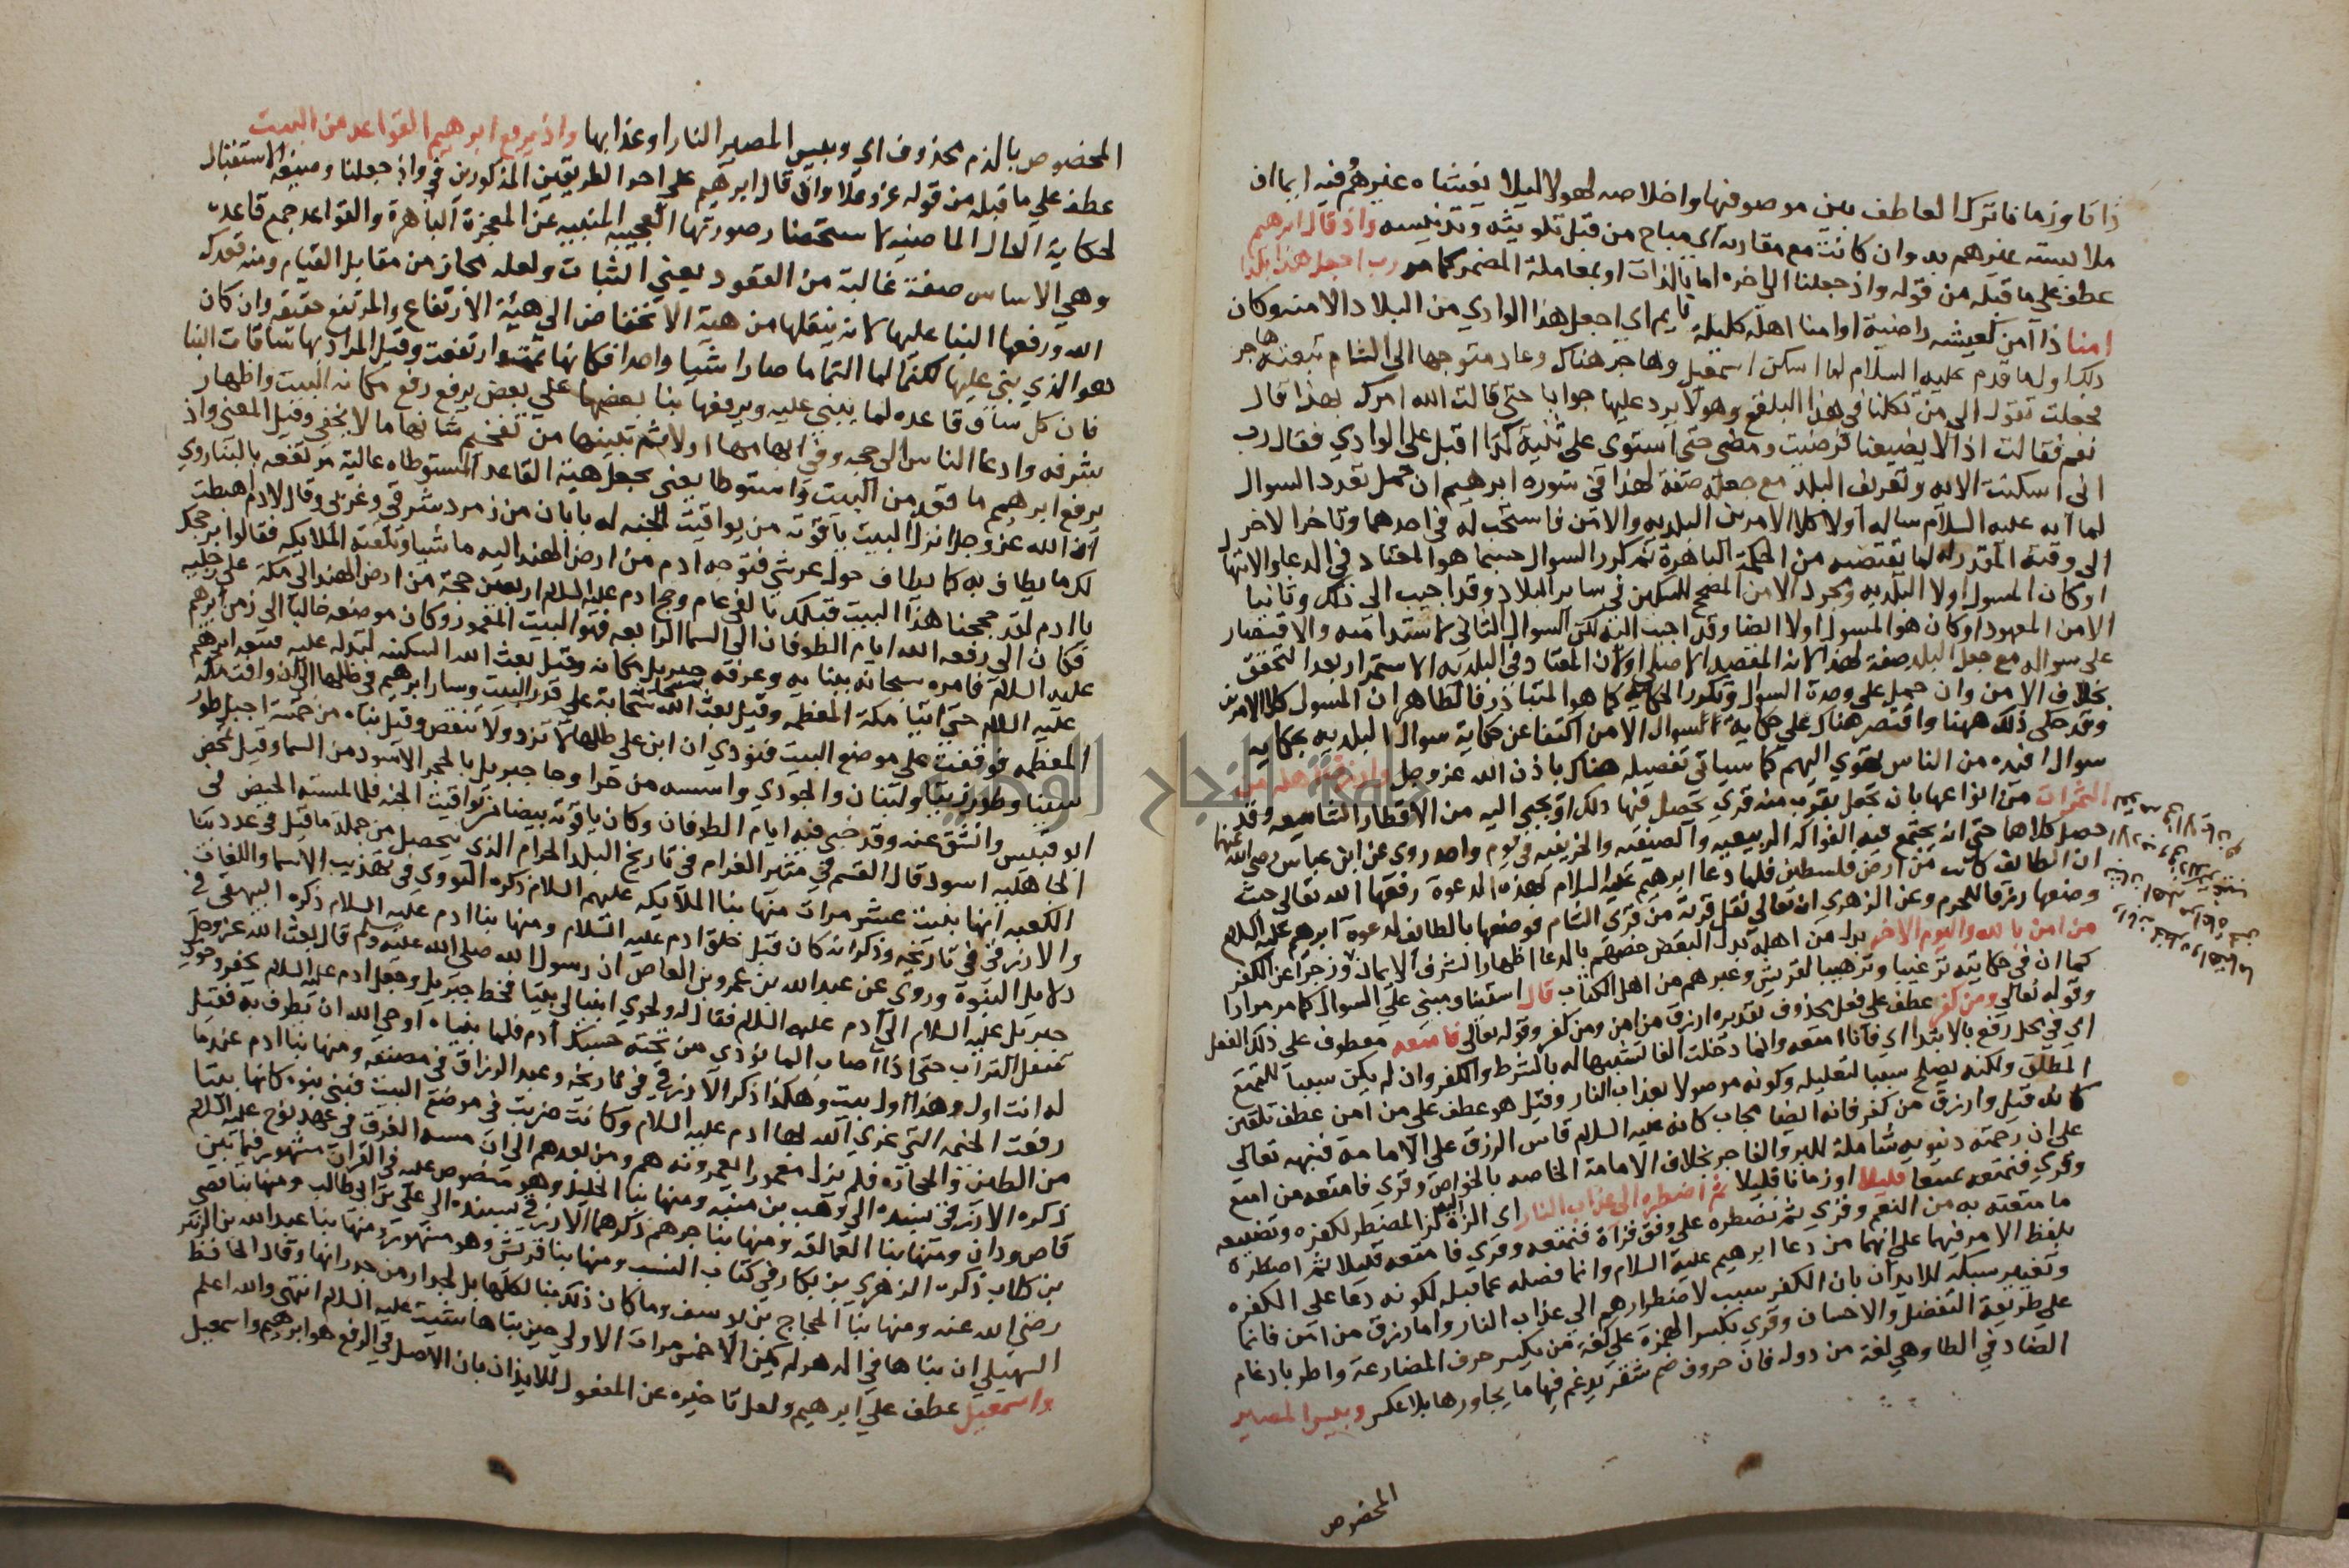 ذاتا وزمانا ترك العاطف بين موصوفيها واخلاصه لهولا ليلا يغشاه غيرهم فيه ايما ان
ملابسته غيرهم به وان كانت مع مقارنة اي مباح من قبل تلويثه وتدنيسه واذ قال ابرهيم
عطف علي ما قبله من قوله واذ جعلنا الي اخره اما بالذات او بمعاملة المضمر كما مر رب اجعل هذا بلدا
امنا ذا امن كعيشه راضية او امنا اهله كليله نايم اي اجعل هذا الوادي من البلاد الامنه وكان
ذلك اول ما قدم عليه السلام لما اسكن اسمعيل وهاجر هناك وعاد متوجها الي الشام تبعته هاجر
فجعلت تقول الي من تكلنا في هذا البلقع وهو لا يرد عليها جوابا حتي قالت الله امرك بهذا قال
نعم فقالت اذا لا يضيعنا فرضيت ومضي حتي استوي علي ثنية كدا اقبل علي الوادي فقال رب
اني اسكنت الايه وتعريف البلد مع جعله صفة لهذا في سوره ابرهيم ان حمل تعدد السوال
لما انه عليه السلام ساله اولا كلا الامرين البلديه والامن فاستجب له في احدهما وتاخر الاخر
الي وقته المقدر له لما تقتضيه من الحكمة الباهرة ثم كرر السوال حسبما هو المعتاد في الدعا والابتها
او كان المسول اولا البلديه ومجرد الامن المصحح للسكني في ساير البلاد وقد اجيب الي ذلك وثانيا
الامن المعهود او كان هو المسول اولا ايضا وقد اجيب اليه لكن السوال الثاني لاستدامته والاقتصار
علي سواله مع جعل البلد صفة لهذا لانه المقصد الاصلي او لان المعتاد في البلديه الاستمرار بعد التحقق
بخلاف الامن وان حمل علي وحدة السوال وتكرر الحكايه كما هو المتبادر فالظاهر ان المسول كلا الامرين
وقد حكي ذلك ههنا واقتصر هناك علي حكاية السوال الامن اكتفا عن حكاية سوال البلديه بحكايه
سوال افيده من الناس تهوي اليهم كما سياتي تفصيله هناك باذن الله عز وجل وارزق اهله من
الثمرات من انواعها بان تجعل بقرب منه قري تحصل فيها ذلك او تجبي اليه من الاقطار الشاسعه وقد
حصل كلاهما حتي انه يجتمع فيه الفواكه الربيعيه والصيفيه والخريفيه في يوم واحد روي عن ابن عباس رضي الله عنهما
ان الطايف كانت من ارض فلسطين فلما دعا ابرهيم عليه السلام بهذه الدعوة رفعها الله تعالي حيث
وضعها رزقا للحرم وعن الزهري انه تعالي نقل قرية من قري الشام فوضعها بالطايف لدعوة ابرهيم عليه السلام
من امن بالله واليوم الاخر بدل من اهله بدل البعض خصهم بالدعا اظهارا لشرف الايمان وزجرا عن الكفر
كما ان في حكايته ترغيبا وترهيبا لقريش وغيرهم من اهل الكتاب قال استينا ومبني علي السوال كما مر مرارا
وقوله تعالي ومن كفر عطف علي فعل محذوف تقديره ارزق من امن ومن كفر وقوله تعالي فامتعه معطوف علي ذلك الفعل
او في محل رفع بالابتدا اي فانا امتعه وانما دخلت الفا تشبيها له بالشرط والكفر وان لم يكن سببا للتمتع
المطلق ولكنه يصلح سببا لتقليله وكونه موصولا بعذاب النار وقيل هو عطف علي من امن عطف تلقين
كانه قيل وارزق من كفر فانه ايضا مجاب كانه عليه السلام قاس الرزق علي الامامة فنبهه تعالي
علي ان رحمته دنيويه شاملة للبر والفاجر بخلاف الامامة الخاصه بالخواص وقري فامتعه من امتع
وقري فنمتعه تمتيعا قليلا او زمانا قليلا ثم اضطره الي عذاب النار اي الزه اليها لز المضطر لكفره وتضييعه
ما متعته به من النعم وقري ثم نضطره علي وفق قراة فنمتعه وقري فامتعه قليلا ثم اضطره
بلفظ الامر فيهما علي انهما من دعا ابرهيم عليه السلام وانما فصله عما قبله لكونه دعا علي الكفره
وتغيير سبكه للايذان بان الكفر سبب لاضطرارهم الي عذاب النار واما رزق من امن فانما
علي طريقة التفضل والاحسان وقري بكسر الهمزة علي لغة من يكسر حرف المضارعة واطره بادغام
الضاد في الطا وهي لغة من دوله فان حروف ضم شفر يدغم فيها ما يجاورها بلا عكس وبيس المصير
المخصوص
المخصوص بالذم محذوف اي وبيس المصير النار او عذابها واذ يرفع ابرهيم القواعد من البيت
عطف علي ما قبله من قوله عز وعلا واذ قال ابرهيم علي احد الطريقين المذكورين في واذ جعلنا وصيغة الاستقبال
لحكاية الحال الماضيه لاستحضار صورتها العجيبه المنبيه عن المعجزة الباهرة والقواعد جمع قاعدة
وهي الاساس صفة غالبة من القعود بمعني الثبات ولعله مجاز من مقابل القيام ومنه قعدك
الله ورفعها البنا عليها لانه ينقلها من هية الانخفاض الي هيئة الارتفاع والمرتفع حقيقه وان كان
هو الذي بني عليها لكنهما لما التاما صارا شيا واحدا فكانها نمت وارتفعت وقيل المراد بها ساقات البنا
فان كل ساق قاعده لما يبني عليه ويرفعها بنا بعضها علي بعض يرفع رفع مكانه البيت واظهار
شرفه وادعا الناس الي حجه وفي ابهامها اولا ثم تبيينها من تفخيم شانها ما لا يخفي وقيل المعني واذ
يرفع ابرهيم ما قعد من البيت واستوطا يعني يجعل هية القاعد المستوطاه عالية مرتفعه بالبنا روي
ان الله عز وجل انزل البيت ياقوته من يواقيت الجنه له بابان من زمرد شرقي وغربي وقال لادم اهبطت
لك ما يطاف به كما يطاف حول عرشي فتوجه ادم من ارض الهند اليه ماشيا وتلقته الملايكه فقالوا بر حجك
يا ادم لقد حججنا هذا البيت قبلك بالفي عام وحج ادم عليه السلام اربعين حجة من ارض الهند الي مكة علي رجليه
فكان الي رفعه الله ايام الطوفان الي السما الرابعه فهو البيت المعمور وكان موضعه خاليا الي زمن ابرهيم
عليه السلام فامره سبحانه ببنايه وعرفه جبريل مكانه وقيل بعث الله السكينه لتدله عليه فتبعه ابرهيم
عليه السلام حتي اتيا مكة المعظمه وقيل بعث الله سحابة علي قدر البيت وسار ابرهيم في ظلها الي ان وافت مكه
المعظمه فوقفت علي موضع البيت فنودي ان ابن علي ظلها لا تزد ولا تنقص وقيل بناه من خمسة اجبل طور
سينا وطور زيتا ولبنان والجودي واسسه من حرا وجا جبريل بالحجر الاسود من السما وقيل تمخض
ابو قبيس وانشق عنه وقد خبي فيه ايام الطوفان وكان ياقوته بيضا من يواقيت الجنه فلما لمسته الحيض في
الجاهليه اسود قال القسم في مثير الغرام في تاريخ البلد الحرام الذي يتحصل من جملة ما قيل في عدد بنا
الكعبه انها بنيت عشر مرات منها بنا الملايكه عليهم السلام ذكره النووي في تهذيب الاسما واللغات
والازرقي في تاريخه وذكر انه كان قبل خلق ادم عليه السلام ومنها بنا ادم عليه السلام ذكره البيهقي في
دلايل النبوة وروي عن عبدالله بن عمرو بن العاص ان رسول الله صلي الله عليه وسلم قال بعث الله عز وجل
جبريل عليه السلام الي ادم عليه السلام فقال له ولحوي ابنيا لي بيتا فخط جبريل وجعل ادم عليه السلام يحفر وحوي
تنقل التراب حتي اذا اصاب الما نودي من تحته حسبك ادم فلما بنياه اوحي الله ان تطوف به فقيل
له انت اول وهذا اول بيت وهكذا ذكر الازرقي في تاريخه وعبد الرزاق في مصنفه ومنها بنا ادم عندما
رفعت الخيمه التي عزي الله بها ادم عليه السلام وكانت ضربت في موضع البيت فبني بنوه كانها بيتا
من الطين والحجاره فلم يزل معمورا يعمرونه هم ومن بعدهم الي ان مسه الغرق في عهد نوح عليه السلام
ذكره الازرقي بسنده الي وهب بن منبه ومنها بنا الخليل وهو منصوص عليه في القران مشهور فيما بين
قاص ودان ومنها بنا العمالقه ومنها بنا جرهم ذكرهما الازرقي بسنده الي علي بن ابي طالب ومنها بنا قصي
بن كلاب ذكره الزهري بن بكار في كتاب النسب ومنها بنا قريش وهو مشهور ومنها بنا عبدالله بن الزبير
رضي الله عنه ومنها بنا الحجاج بن يوسف وما كان ذلك بنا لكلها بل لجدار من جدرانها وقال الحافظ
السهيلي ان بناها في الدهر لم يكن الا خمس مرات الاولي حين بناها شيث عليه السلام انتهي والله اعلم
واسمعيل عطف علي ابرهيم ولعل تاخيره عن المفعول للايذان بان الاصل في الرفع هو ابرهيم واسمعيل
جامعة النجاح الوطنية